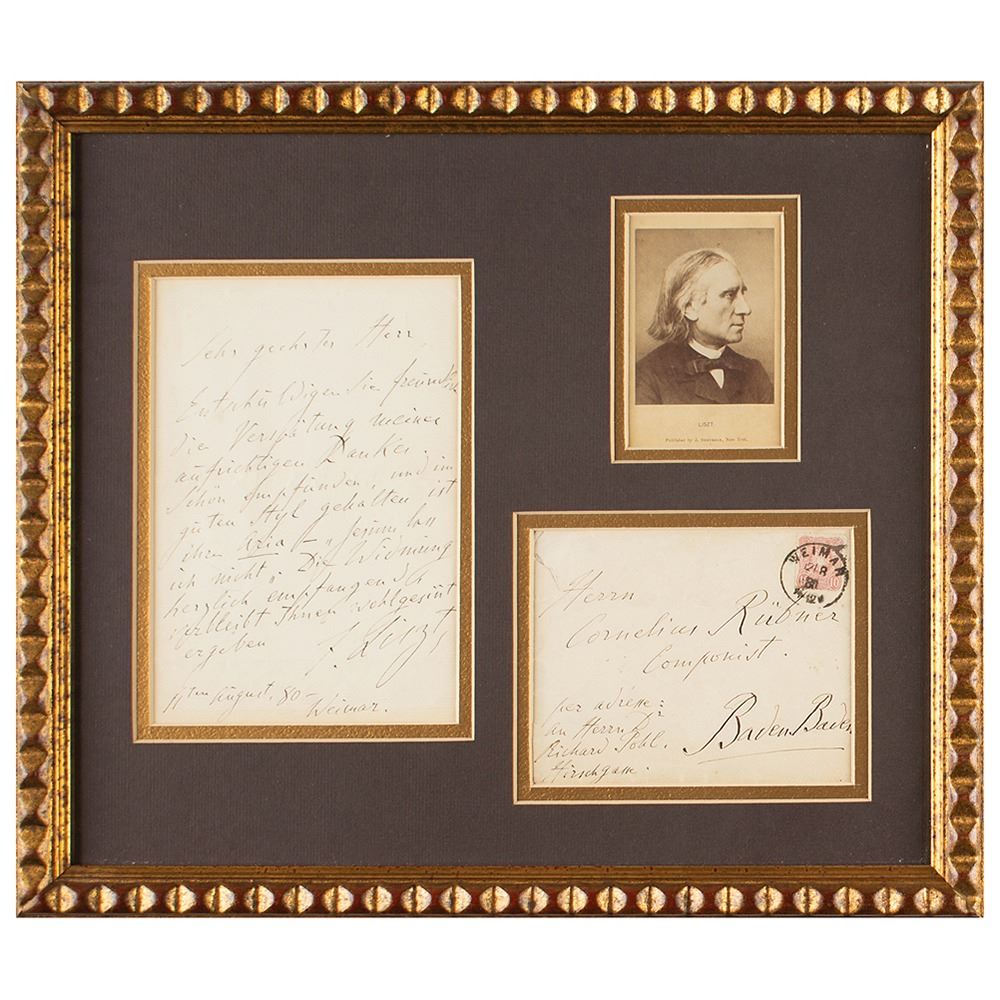 Sehr geehrter Herr
Entschuldigen Sie freundlich
die Verspätung meines
aufrichtigen Dankes.
Schön empfunden, und im
guten Styl gehalten ist
ihre Aria – „Jesum lass
ich nicht". Die Widmung
herzlich empfangend
verbleibt Ihnen wohlgesinnt
ergeben
F. Liszt
11ten August, 80 –
Weimar.
LISZT.
Published by J. New York.
WEIMAR
10
Herrn
Cornelius Rübner
Componist.
per adresse:
an Herrn
Richard Pohl.
Hirschgasse.
Baden Baden